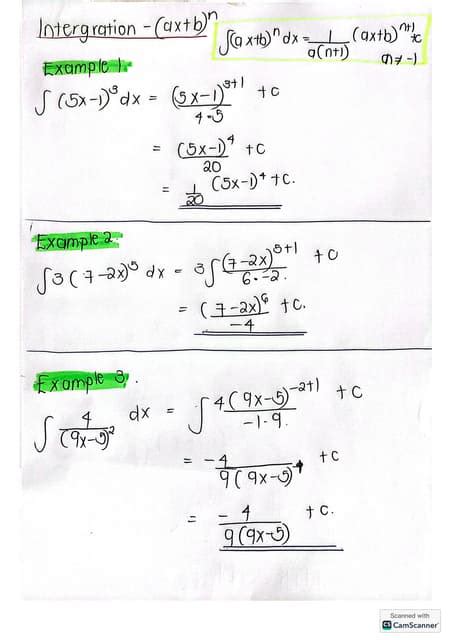 Intergration - (ax+b)^n
∫(ax+b)^n dx = 1/a(n+1) (ax+b)^(n+1) + c
n ≠ -1
Example 1.
∫ (5x-1)^3 dx = (5x-1)^(3+1)/4·5 + c
= (5x-1)^4/20 + c
= 1/20 (5x-1)^4 + c.
Example 2.
∫3(7-2x)^5 dx = 3∫(7-2x)^(5+1)/6·-2. + c
= (7-2x)^6/-4 + c.
Example 3.
∫ 4/(9x-5)^2 dx = ∫ 4(9x-5)^(-2+1)/-1·9. + c
= -4/9(9x-5)^1 + c
= -4/9(9x-5) + c.
Scanned with
CS CamScanner